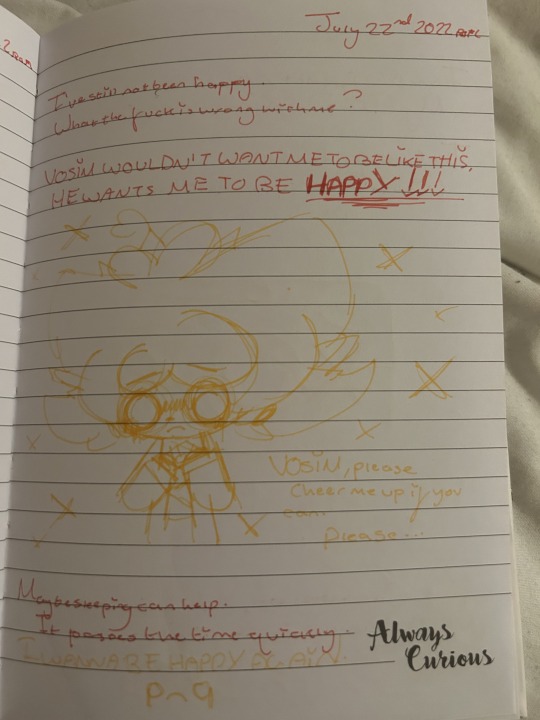 July 22nd 2022
I've still not been happy.
What the fuck is wrong with me?
VOSIM WOULDN'T WANT ME TO BE LIKE THIS.
HE WANTS ME TO BE HAPPY!!!
VOSIM, please
Cheer me up if you
can.
Please...
Maybe sleeping can help.
It passes the time quickly.
I WANNA BE HAPPY AGAIN!
Always
Curious